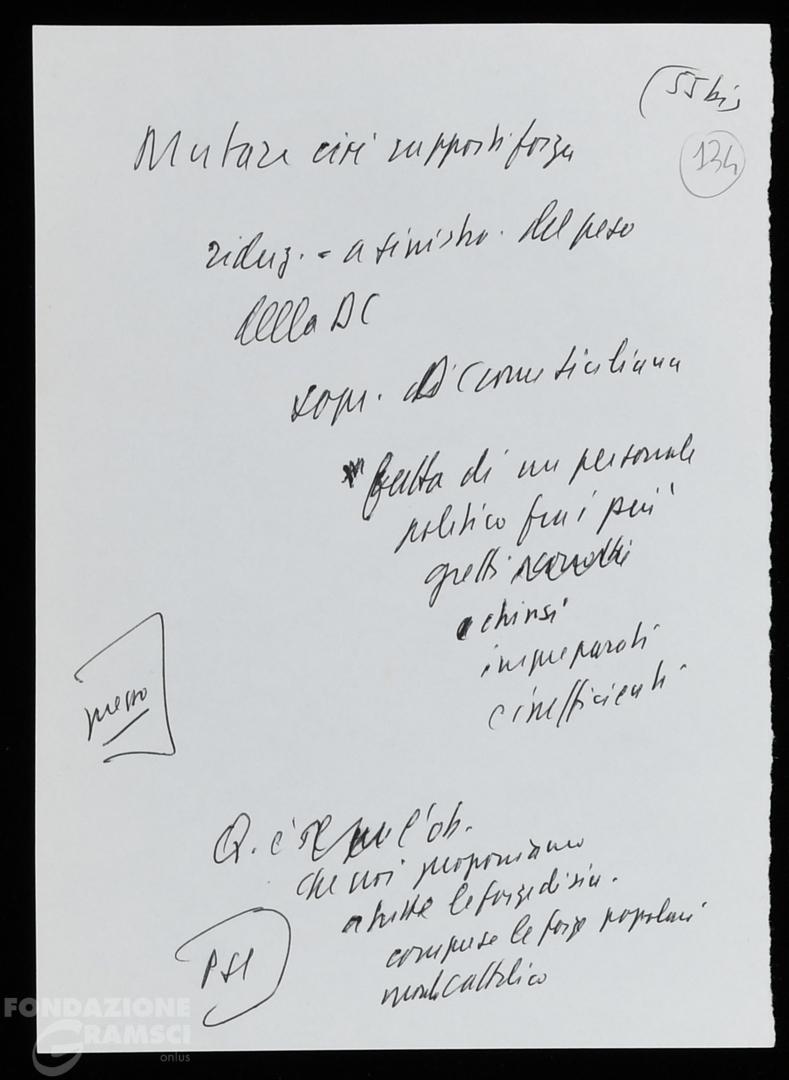 (55 bis
134
Mutare così rapporti forza
riduz. = a sinistra. del peso
della DC
sopr. DC come siciliana
fatta di un personale
politico fra i più
gretti
chiusi
impreparati
e inefficienti
messo
Q. è l'ob.
che noi proponiamo
a tutte le forze di sin.
comprese le forze popolari
mondo cattolico
PSI
FONDAZIONE
GRAMSCI
onlus